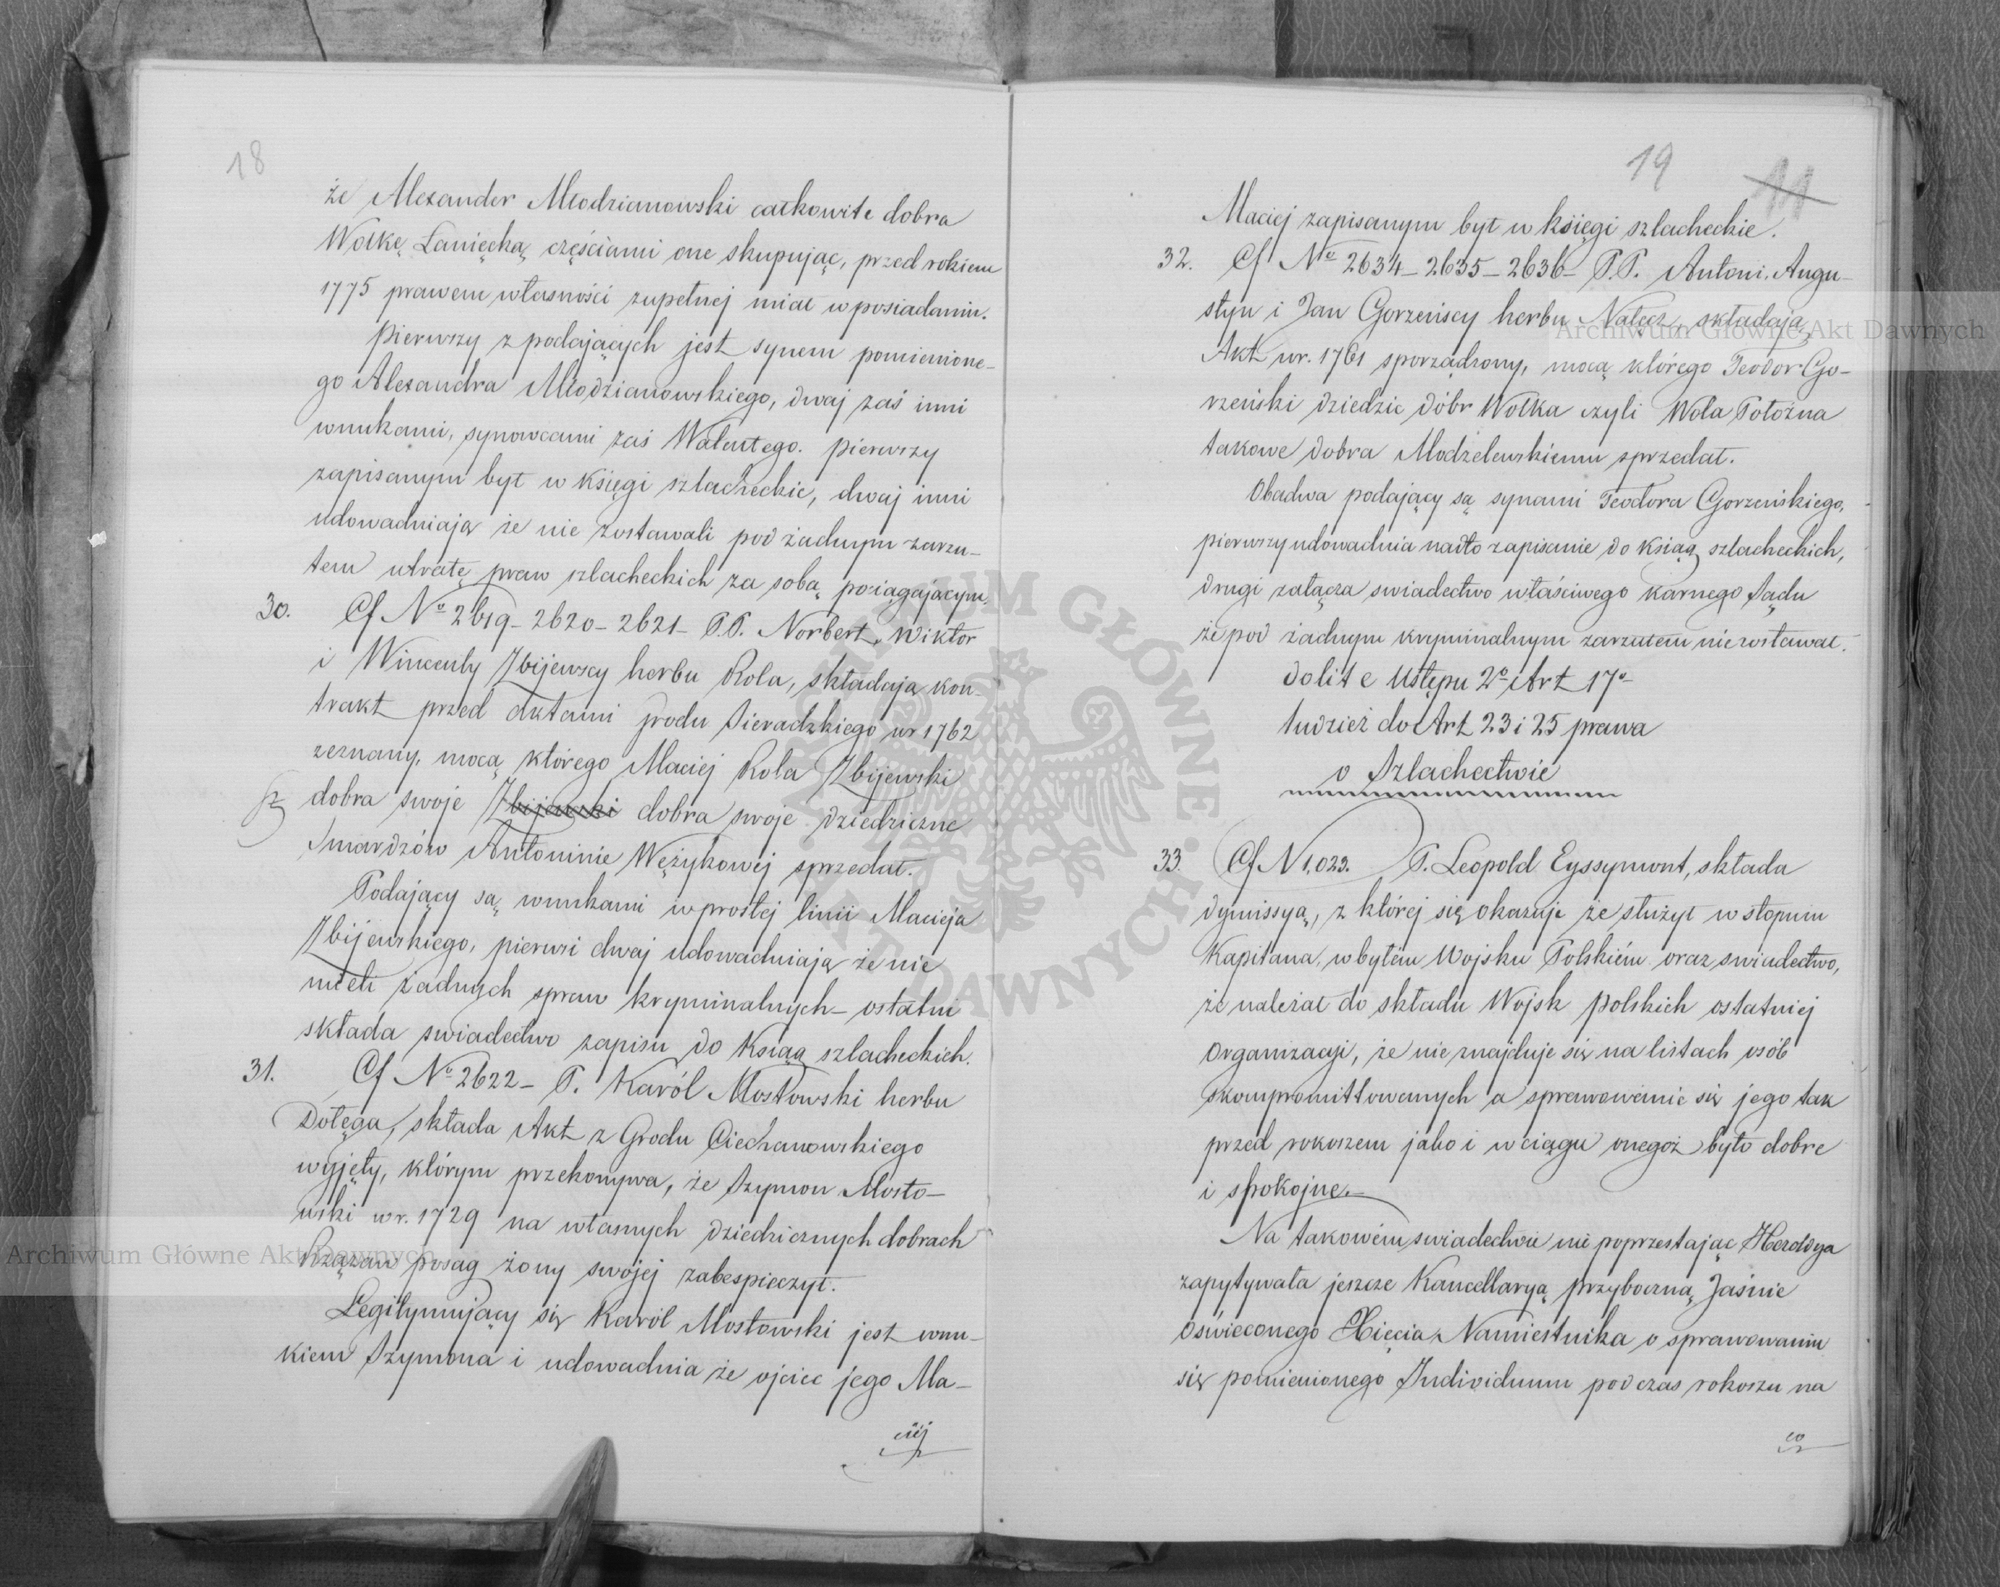 18
że Alexander Młodzianowski całkowite dobra
Wolkę Łanięcką częściami one skupując, przed rokiem
1775 prawem własności zupełnej miał w posiadaniu.
Pierwszy z podających jest synem pomienione-
go Alexandra Młodzianowskiego, dwaj zaś inni
wnukami, synowcami zaś Walentego. Pierwszy
zapisanym był w księgi szlacheckie, dwaj inni
udowadniają że nie zostawali pod żadnym zarzu-
tem utratę praw szlacheckich za sobą pociągającym.
30. Cf No 2619- 2620- 2621- P.P. Norbert, Wiktor
i Wincenty Zbijewscy herbu Rola, składają kon-
trakt przed Aktami grodu Sieradzkiego w r 1762
zeznany, mocą którego Maciej Rola Zbijewski
dobra swoje Zbijewski dobra swoje dziedziczne
Smardzów Antoninie Wężykowej sprzedał.
Podający są wnukami w prostej linii Macieja
Zbijewskiego, pierwsi dwaj udowadniają że nie
mieli żadnych spraw kryminalnych- ostatni
składa swiadectwo zapisu do Ksiąg szlacheckich.
31. Cf No 2622- P. Karól Mostowski herbu
Dołęga, składa Akt z Grodu Ciechanowskiego
wyjęty, którym przekonywa, że Szymon Mosto-
wski w r. 1729 na własnych dziedzicznych dobrach
Rzązew posag żony swojej zabespieczył.
Legitymujący się Karól Mostowski jest wnu-
kiem Szymona i udowadnia że ojciec jego Ma-
ciej
19 11
Maciej zapisanym był w księgi szlacheckie.
32. Cf No 2634- 2635- 2636- P.P. Antoni, Augu-
styn i Jan Gorzeńscy herbu Nałęcz, składają
Akt w r. 1761 sporządzony, mocą którego Teodor Go-
rzeński dziedzic dóbr Wolka czyli Wola Położna
takowe dobra Modzelewskiemu sprzedał.
Obadwa podający są synami Teodora Gorzeńskiego,
pierwszy udowadnia nadto zapisanie do ksiąg szlacheckich,
drugi załącza swiadectwo właściwego karnego Sądu
że pod żadnym kryminalnym zarzutem nie zostawał.
do lit e Ustępu 2o Art 17o
tudzież do Art 23 i 25 prawa
o Szlachectwie
33. Cf N 1,023. P. Leopold Eyssymont, składa
dymissyą, z której się okazuje że służył w stopniu
Kapitana, w byłem Wojsku Polskiém oraz swiadectwo,
że należał do składu Wojsk polskich ostatniej
organizacji, że nie znajduje się na listach osób
skompromittowanych a sprawowanie się jego tak
przed rokoszem jako i w ciągu onegoż było dobre
i spokojne.-
Na takowém swiadectwie nie poprzestając Heroldya
zapytywała jeszcze Kancellaryą przyboczną Jaśnie
Oświeconego Xięcia Namiestnika o sprawowaniu
się pomienionego Individuum podczas rokoszu na
co
Archiwum Główne Akt Dawnych
Archiwum Główne Akt Dawnych
ARCHIWUM GŁÓWNE AKT DAWNYCH